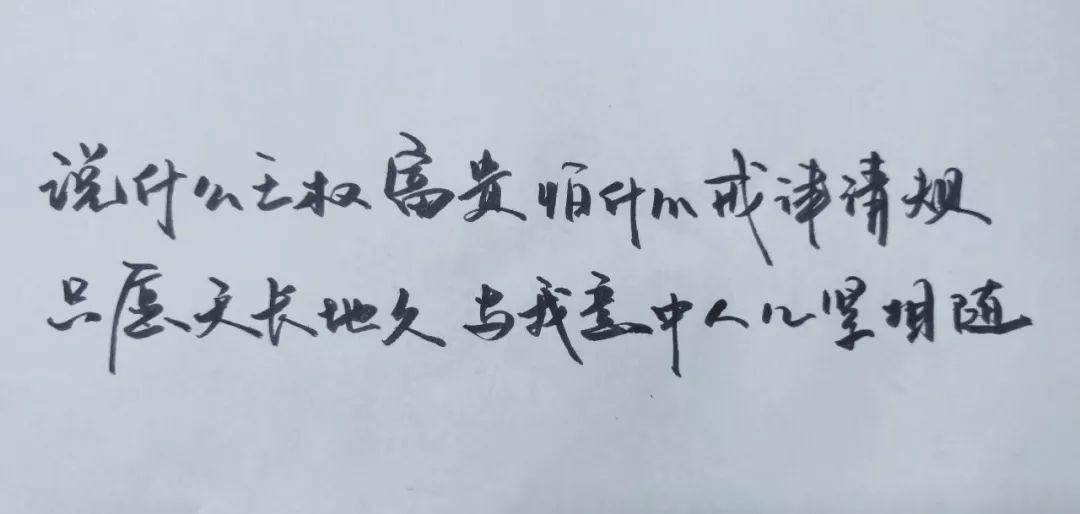 说什么王权富贵 怕什么戒律清规
只愿天长地久 与我意中人儿紧相随